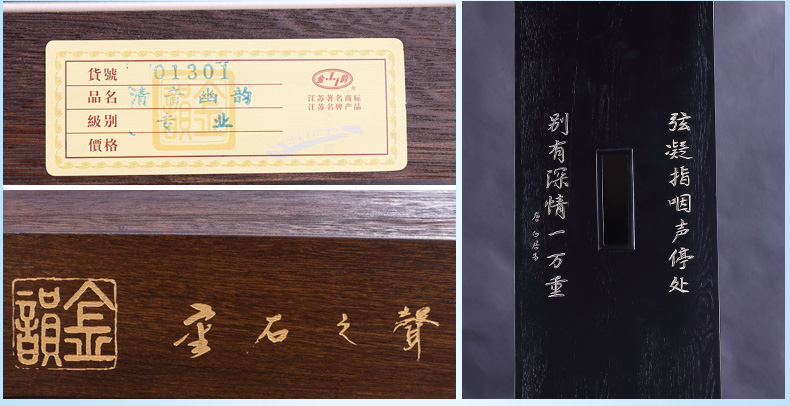 貨號 01301
品名 清 幽韵
級別 专业
價格
江苏著名商标
江苏名牌产品
金韻
金石之聲
弦凝指咽声停处
别有深情一万重
唐白居易